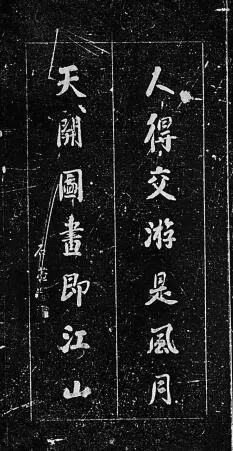 人得交游是風月
天開圖畫即江山